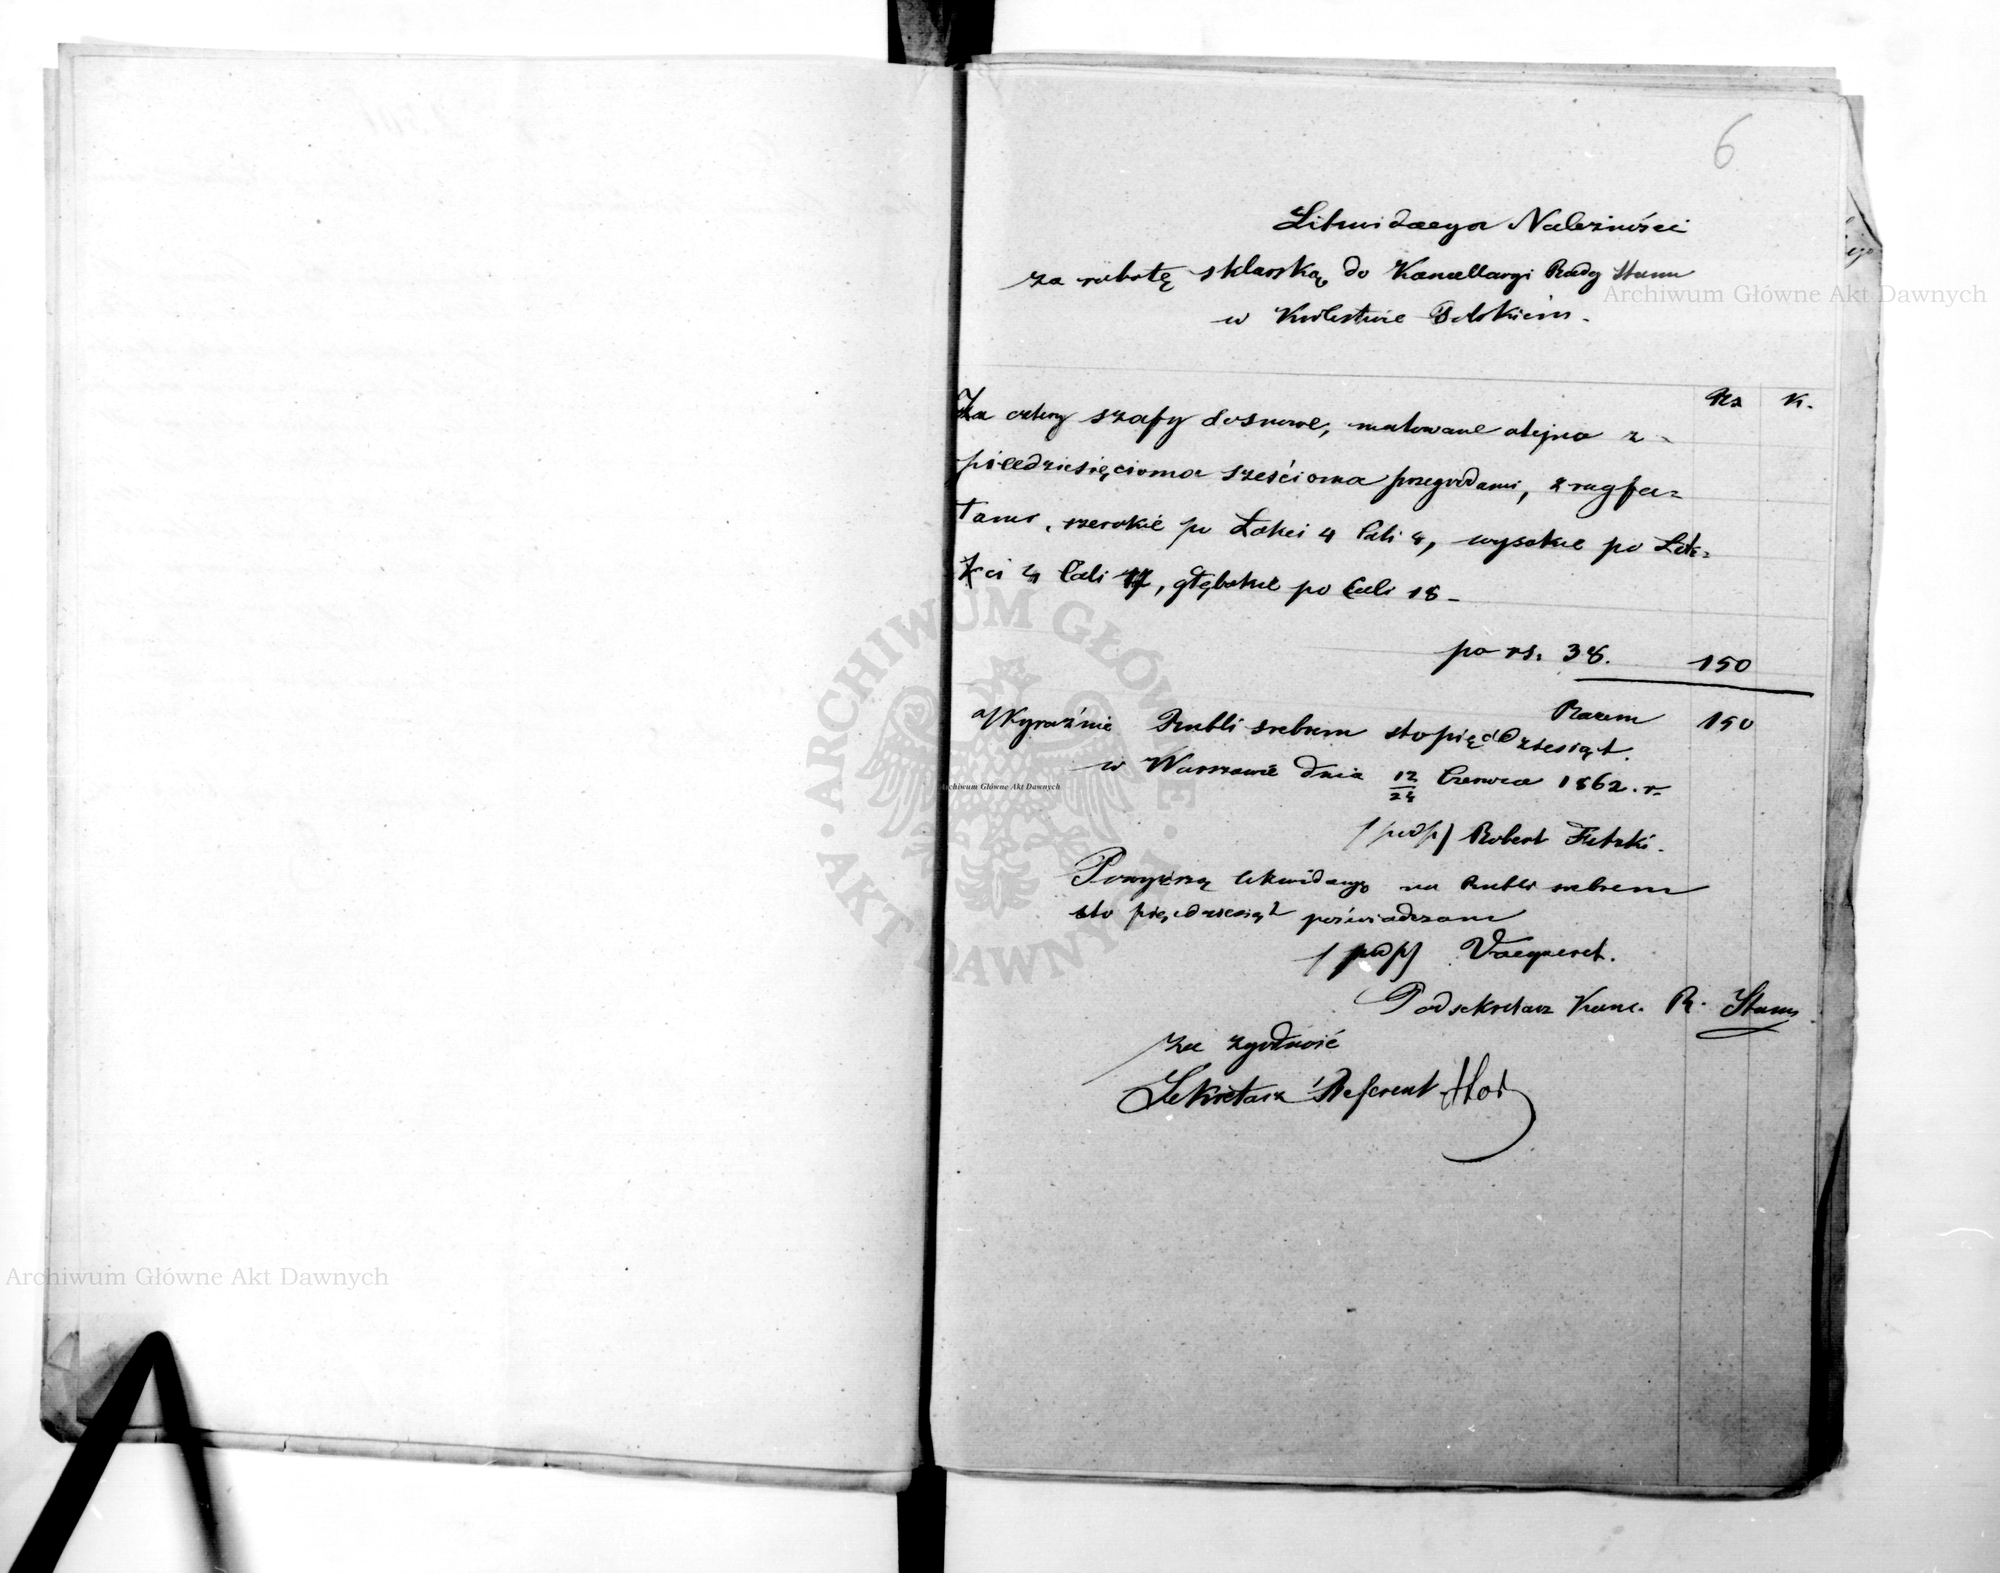 6
Likwidacya Należności
za robotę sklarską do Kancellaryi Rady Stanu
w Królestwie Polskiém.
Rs K.
Za cztery szafy sosnowe, malowane olejno z
pięćdziesięcioma sześcioma przegrodami, z rygla-
tami, szerokie po Łokci 4 Cali 4, wysokie po Łok-
ci 4 Cali 12, głębokie po Cali 18 –
po rs. 38. 150
Razem 150
Wyraźnie Rubli srebrem stopięćdziesiąt.
w Warszawie dnia 12/24 Czerwca 1862. r.
(podp) Robert
Powyższą likwidacyę na Rubli srebrem
sto pięćdziesiąt poświadczam
(podp) Vacqueret.
Podsekretarz Kanc. R. Stanu
Za zgodność
Sekretarz Referent
Archiwum Główne Akt Dawnych
Archiwum Główne Akt Dawnych
Archiwum Główne Akt Dawnych
ARCHIWUM GŁÓWNE · AKT DAWNYCH ·